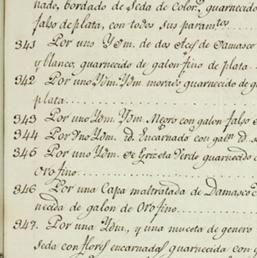 nado, bordado de Seda de Color.s, guarnecido
falso de plata, con todos sus param.tos
341 Por uno Ydm. de dos de Damasco
y blanco, guarnecido de galon fino de plata
342 Por uno Ydm. Ydm. morado guarnecido de g
plata
343 Por uno Ydm. Ydm. Negro con galon falso d
344 Por Vno Ydm. id. Encarnado con gal.n id.
345 Por uno Ydm. de Griseta Verde guarnecido d
Oro fino
346 Por una Capa maltratada de Damasco
necida de galon de Oro fino
347 Por una Ydm., y una muceta de genero
Seda con flores encarnadas guarnecida con g